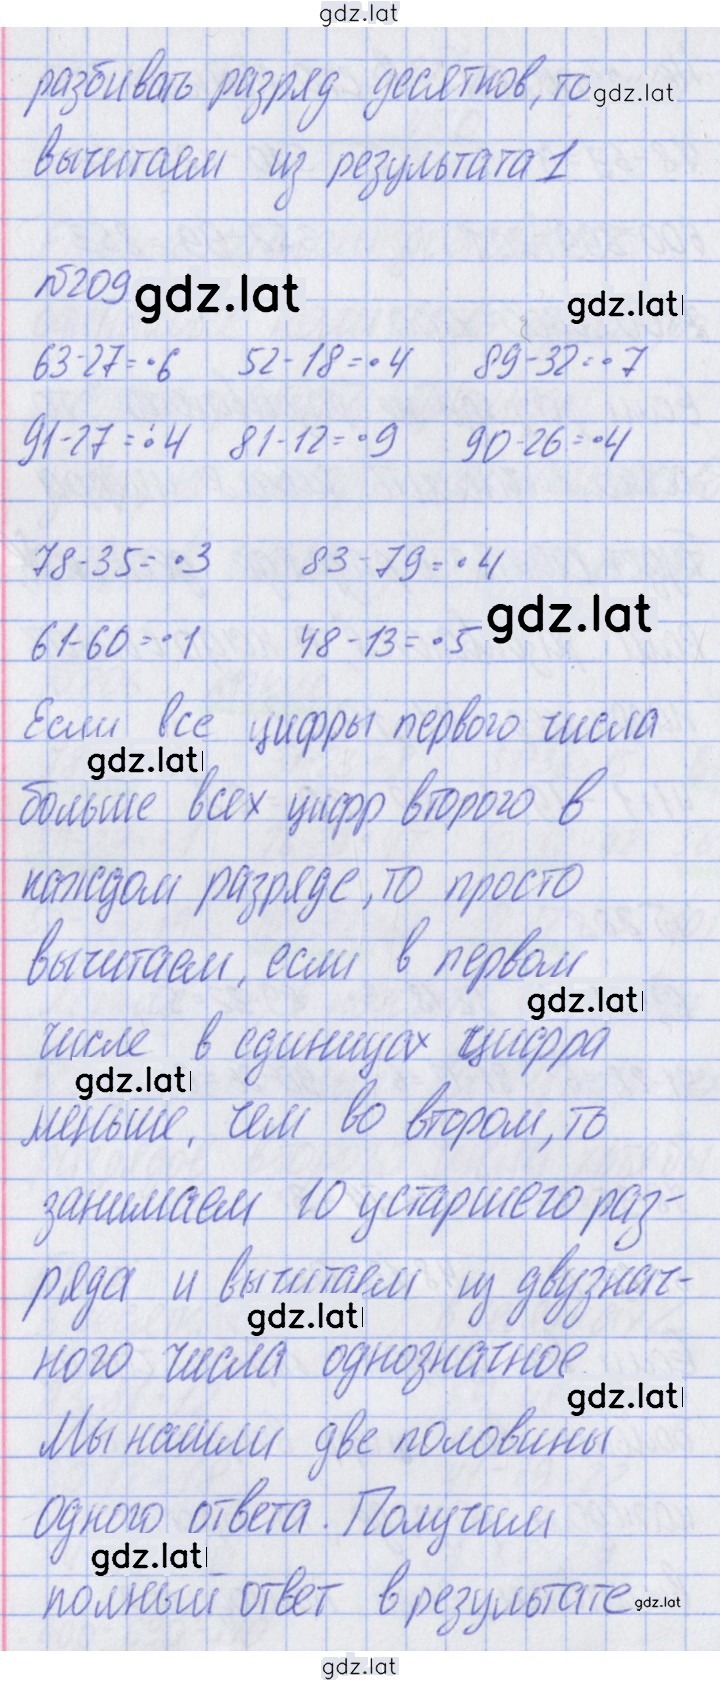 gdz.lat
разбивать разряд десятков, то gdz.lat
вычитаем из результата 1
№209 gdz.lat gdz.lat
63-27=·6 52-18=·4 89-32=·7
91-27=·4 81-12=·9 90-26=·4
78-35=·3 83-79=·4
61-60=·1 48-13=·5 gdz.lat
Если все цифры первого числа
gdz.lat
больше всех цифр второго в
каждом разряде, то просто
вычитаем, если в первом
gdz.lat
числе в единицах цифра
gdz.lat
меньше, чем во втором, то
занимаем 10 у старшего раз-
ряда и вычитаем из двузнач-
gdz.lat
ного числа однозначное
gdz.lat
Мы нашли две половины
одного ответа. Получим
gdz.lat
полный ответ в результате gdz.lat
gdz.lat